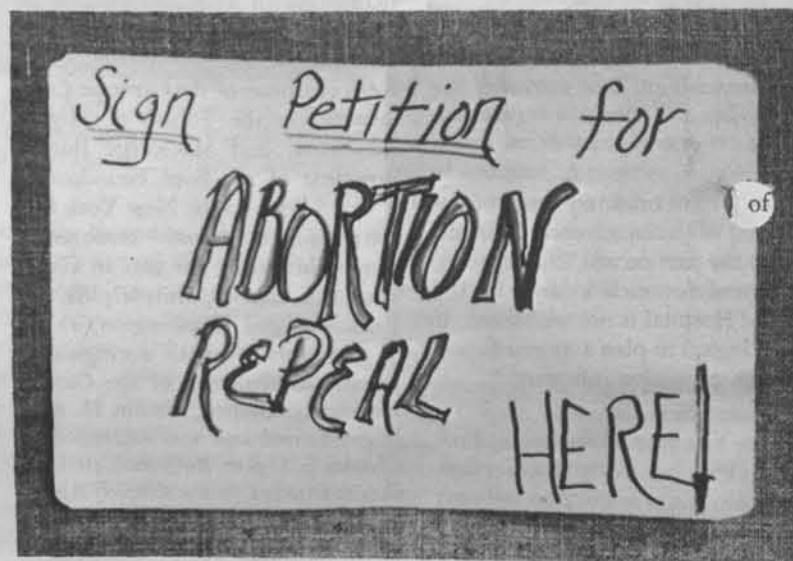 Sign Petition for
ABORTION
of
REPEAL
HERE!